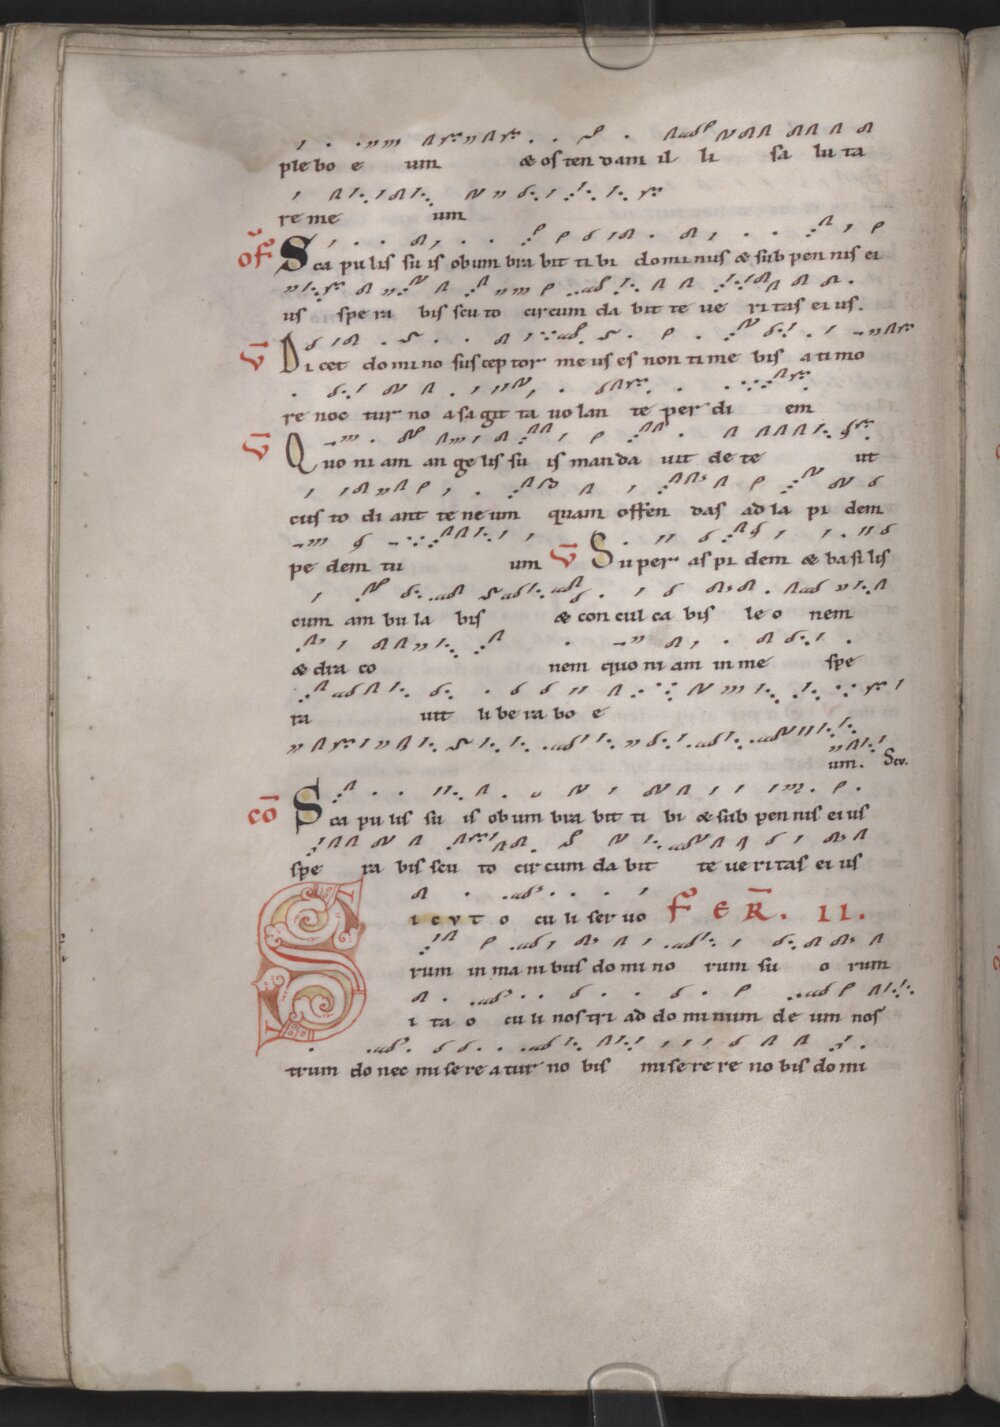 ple bo e um & os ten dam il li sa lu ta
re me um
OF Sca pu lis su is ob um bra bit ti bi do mi nus & sub pen nis ei
us spe ra bis scu to circum da bit te ve ri tas ei us.
V Di cet do mi no sus cep tor me us es non ti me bis a ti mo
re noc tur no a sa git ta vo lan te per di em
V Quo ni am an ge lis su is man da vit de te ut
cus to di ant te ne um quam offen das ad la pi dem
pe dem tu um V Su per as pi dem & ba si lis
cum am bu la bis & con cul ca bis le o nem
& dra co nem quo ni am in me spe
ra vit li be ra bo e
um. Scu.
CO Sca pu lis su is ob um bra bit ti bi & sub pen nis ei us
spe ra bis scu to cir cum da bit te ve ri tas ei us
SICUT o cu li ser vo FER. II.
rum in ma ni bus do mi no rum su o rum
i ta o cu li nos tri ad do mi num de um nos
trum do nec mi se re a tur no bis mi se re re no bis do mi